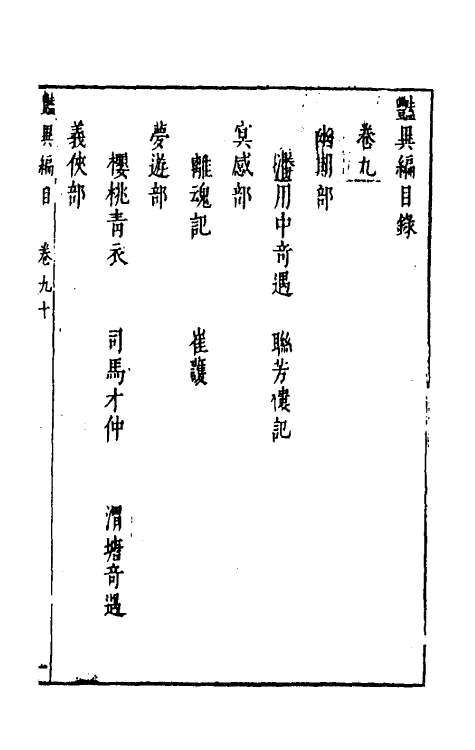 豔異編目錄
卷九
幽期部
潘用中奇遇 聯芳樓記
冥感部
離魂記 崔護
夢遊部
櫻桃青衣 司馬才仲 渭塘奇遇
義俠部
豔異編目 卷九十 一